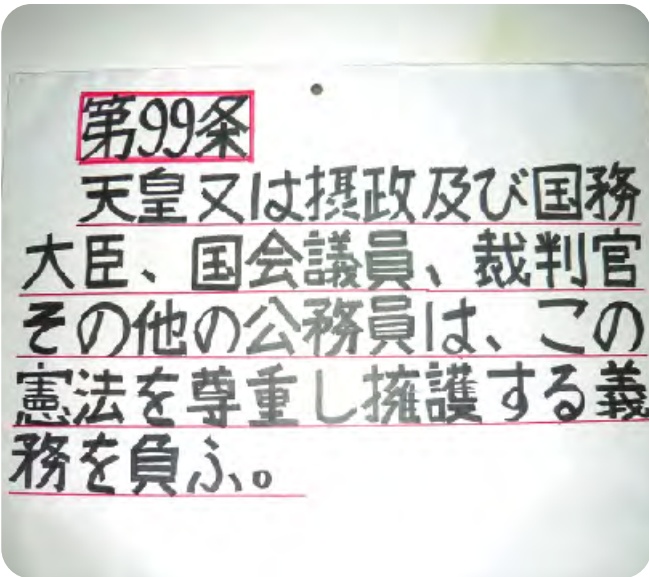 第99条
天皇又は摂政及び国務
大臣、国会議員、裁判官
その他の公務員は、この
憲法を尊重し擁護する義
務を負ふ。